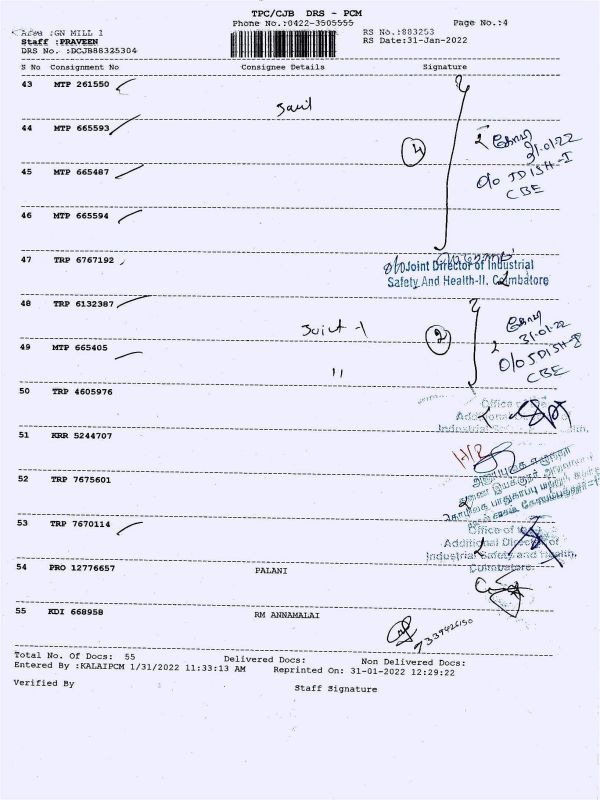 TPC/CJB DRS - PCM
Phone No.:0422-3505555 Page No.:4
Area :GN MILL 1 RS No.:883253
Staff :PRAVEEN RS Date:31-Jan-2022
DRS No. :DCJB88325304
S No Consignment No Consignee Details Signature
43 MTP 261550
44 MTP 665593
4
31.01.22
45 MTP 665487
O/o JDISH-I
CBE
46 MTP 665594
47 TRP 6767192
O/o Joint Director of Industrial
Safety And Health-II. Coimbatore
48 TRP 6132387
2
31-01-22
49 MTP 665405
O/o JDISH-I
CBE
"
50 TRP 4605976
Office of
Industrial
51 KRR 5244707
52 TRP 7675601
53 TRP 7670114
Office of
Additional Director of
Industrial Safety and Health,
Coimbatore
54 PRO 12776657 PALANI
55 KDI 668958 RM ANNAMALAI
7339426150
Total No. Of Docs: 55 Delivered Docs: Non Delivered Docs:
Entered By :KALAIPCM 1/31/2022 11:33:13 AM Reprinted On: 31-01-2022 12:29:22
Verified By Staff Signature